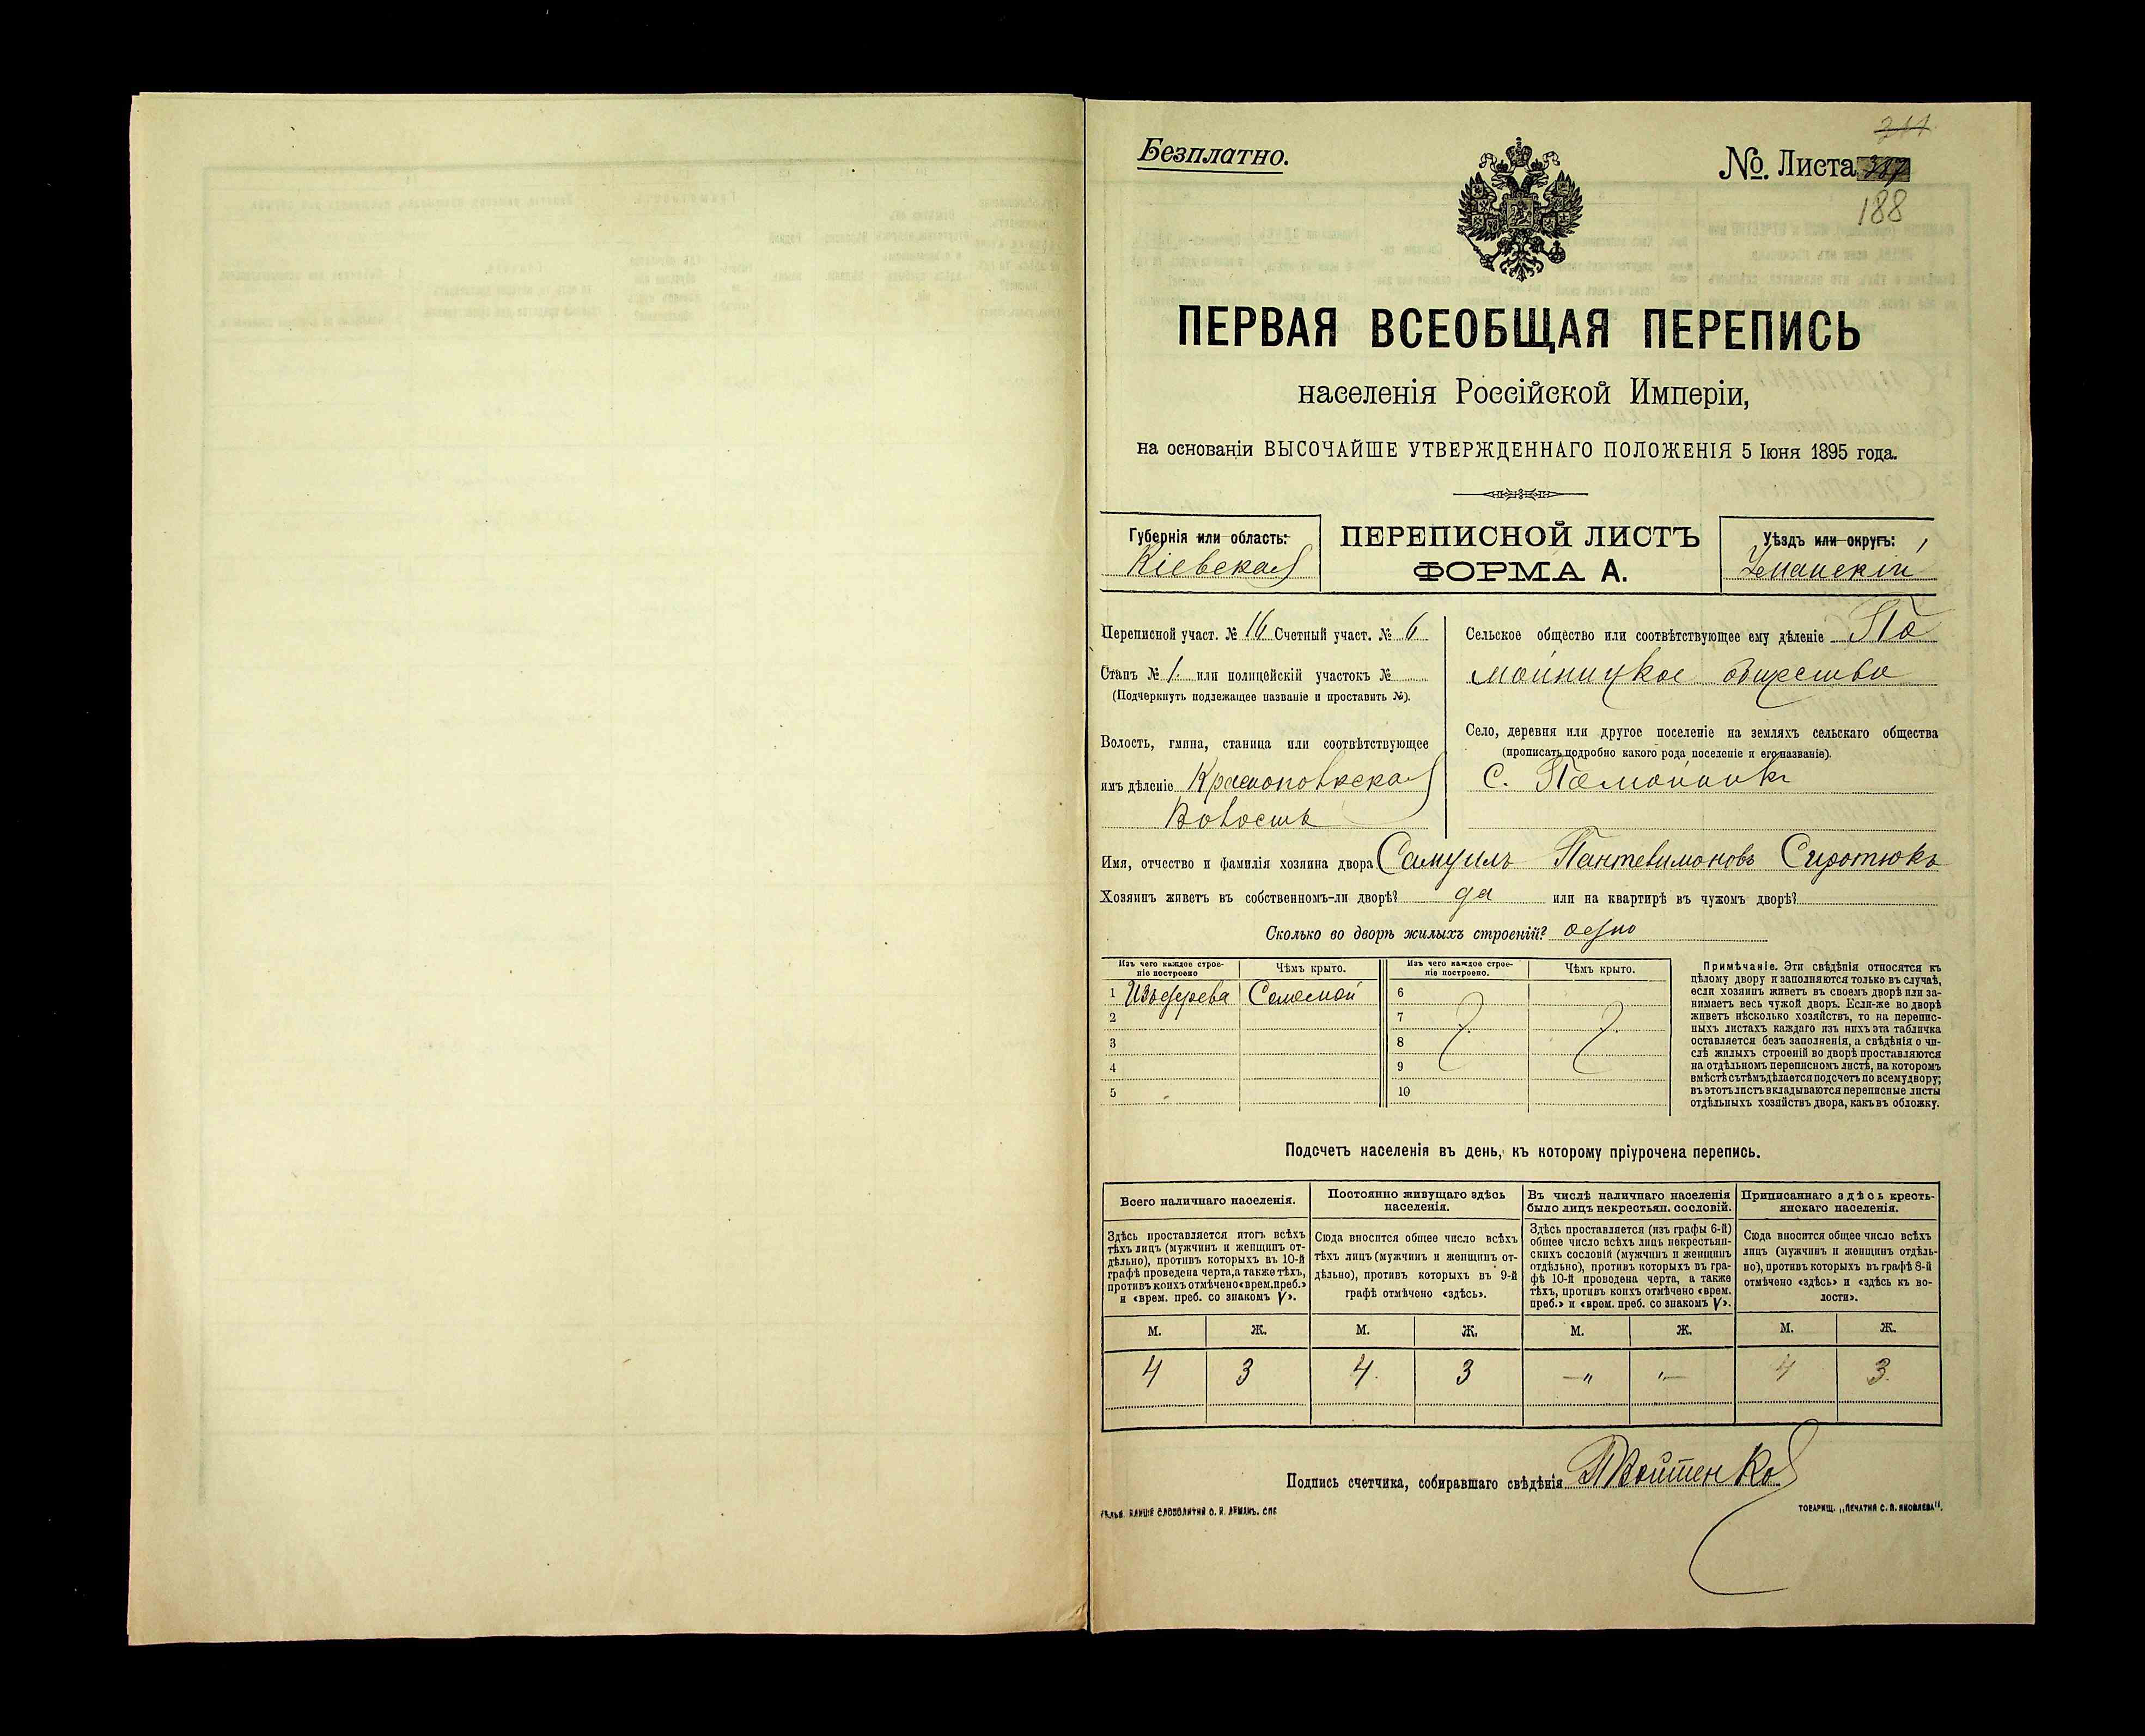 Безплатно.
№. Листа
188
ПЕРВАЯ ВСЕОБЩАЯ ПЕРЕПИСЬ
населенія Россійской Имперіи,
на основаніи ВЫСОЧАЙШЕ УТВЕРЖДЕННАГО ПОЛОЖЕНІЯ 5 Іюня 1895 года.
Губернія или область:
Кіевская
ПЕРЕПИСНОЙ ЛИСТЪ
ФОРМА А.
Уѣздъ или округъ:
Уманскій
Переписной участ. № 16 Счетный участ. № 6
Станъ № 1. или полицейскій участокъ №
(Подчеркнуть подлежащее названіе и проставить №).
Волость, гмина, станица или соотвѣтствующее
имъ дѣленіе
Волость
Сельское общество или соотвѣтствующее ему дѣленіе По
мойницкое общество
Село, деревня или другое поселеніе на земляхъ сельскаго общества
(прописать подробно какого рода поселеніе и его названіе).
С. Помойникъ
Имя, отчество и фамилія хозяина двора Самуилъ Пантелимоновъ Сиротюкъ
Хозяинъ живетъ въ собственномъ-ли дворѣ? да или на квартирѣ въ чужомъ дворѣ?
Сколько во дворѣ жилыхъ строеній? одно
Изъ чего каждое строе-
ніе построено
Чѣмъ крыто.
Изъ чего каждое строе-
ніе построено.
Чѣмъ крыто.
1 Изъ дерева Соломой
2
3
4
5
6
7
8
9
10
Примѣчаніе. Эти свѣдѣнія относятся къ
цѣлому двору и заполняются только въ случаѣ,
если хозяинъ живетъ въ своемъ дворѣ или за-
нимаетъ весь чужой дворъ. Если-же во дворѣ
живетъ нѣсколько хозяйствъ, то на перепис-
ныхъ листахъ каждаго изъ нихъ эта табличка
оставляется безъ заполненія, а свѣдѣнія о чи-
слѣ жилыхъ строеній во дворѣ проставляются
на отдѣльномъ переписномъ листѣ, на которомъ
вмѣстѣ съ тѣмъ дѣлается подсчетъ по всему двору;
въ этотъ листъ вкладываются переписные листы
отдѣльныхъ хозяйствъ двора, какъ въ обложку.
Подсчетъ населенія въ день, къ которому пріурочена перепись.
Всего наличнаго населенія.
Здѣсь проставляется итогъ всѣхъ
тѣхъ лицъ (мужчинъ и женщинъ от-
дѣльно), противъ которыхъ въ 10-й
графѣ проведена черта, а также тѣхъ,
противъ коихъ отмѣчено «врем. преб.»
и «врем. преб. со знакомъ V».
Постоянно живущаго здѣсь
населенія.
Сюда вносится общее число всѣхъ
тѣхъ лицъ (мужчинъ и женщинъ от-
дѣльно), противъ которыхъ въ 9-й
графѣ отмѣчено «здѣсь».
Въ числѣ наличнаго населенія
было лицъ некрестьян. сословій.
Здѣсь проставляется (изъ графы 6-й)
общее число всѣхъ лицъ некрестьян-
скихъ сословій (мужчинъ и женщинъ
отдѣльно), противъ которыхъ въ гра-
фѣ 10-й проведена черта, а также
тѣхъ, противъ коихъ отмѣчено «врем.
преб.» и «врем. преб. со знакомъ V».
Приписаннаго здѣсь кресть-
янскаго населенія.
Сюда вносится общее число всѣхъ
лицъ (мужчинъ и женщинъ отдѣль-
но), противъ которыхъ въ графѣ 8-й
отмѣчено «здѣсь» и «здѣсь къ во-
лости».
М. Ж. М. Ж. М. Ж. М. Ж.
4 3 4. 3 —„ „— 4 3.
Подпись счетчика, собиравшаго свѣдѣнія
ТОВАРИЩ. „ПЕЧАТНЯ С. П. ЯКОВЛЕВА".